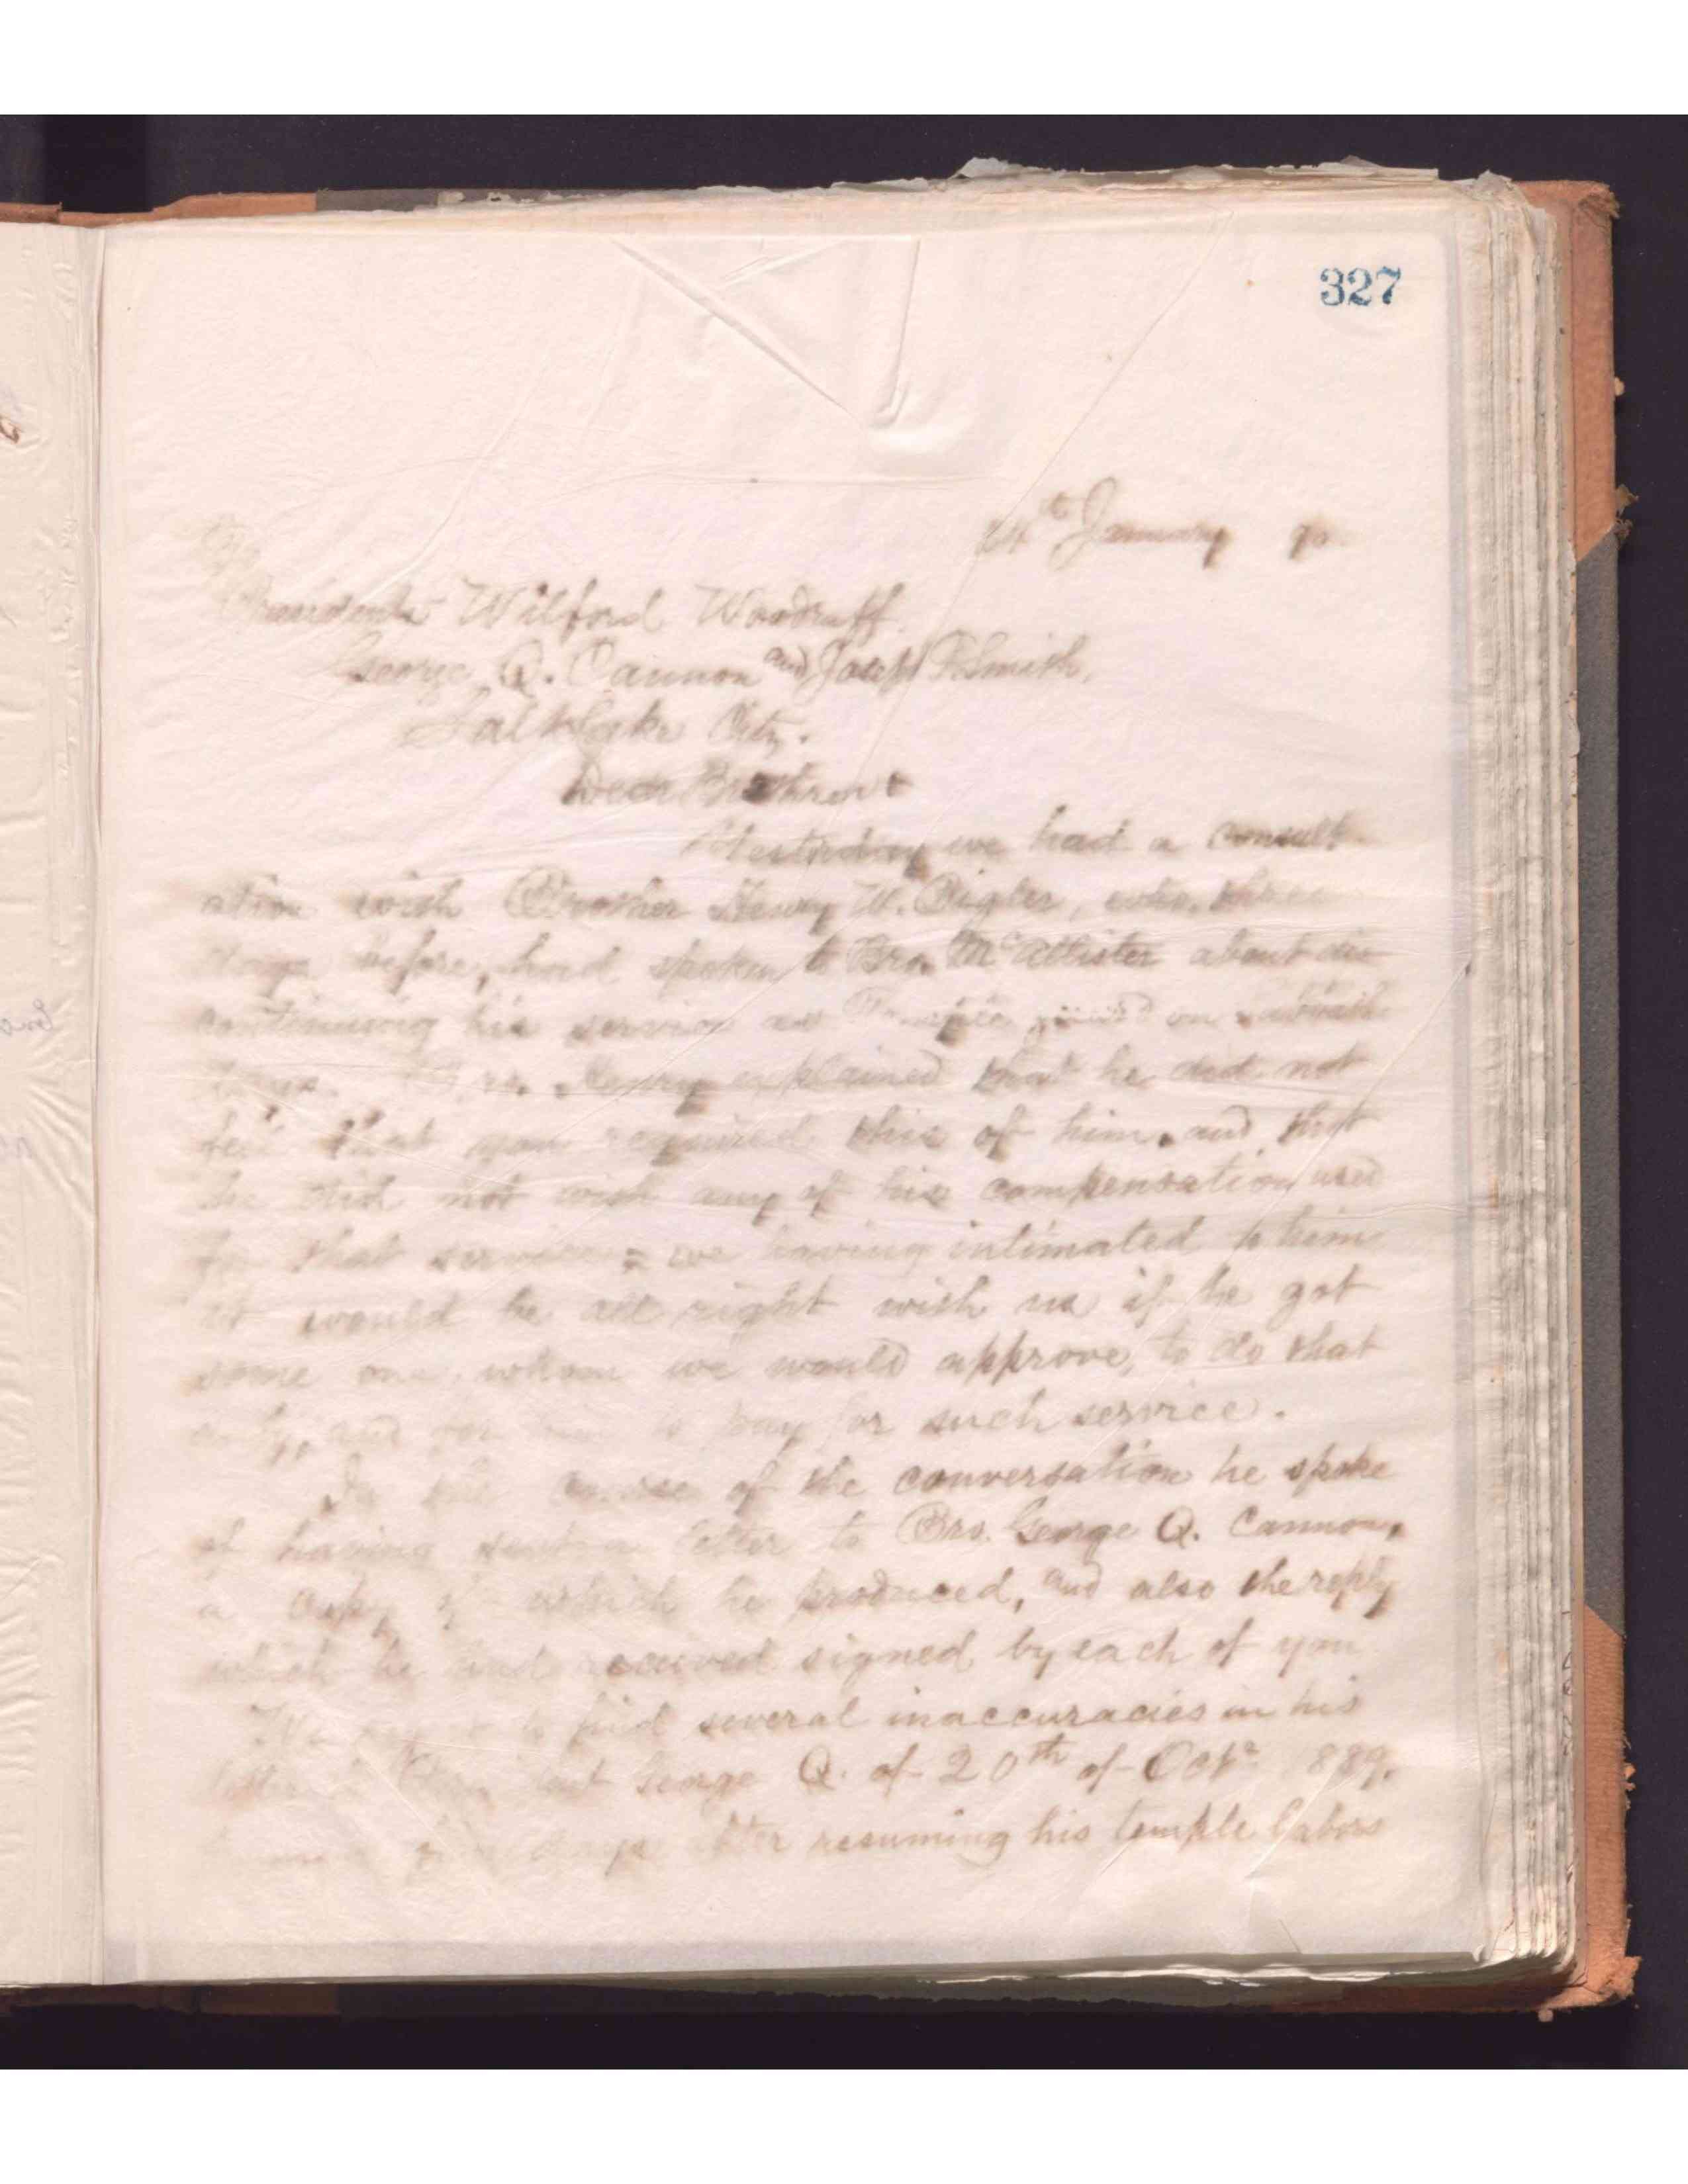 327
14th January 90.
Presidents Wilford Woodruff
George Q. Cannon and Joseph F. Smith,
Salt Lake City.
Dear Brethren:
Yesterday we had a consult-
ation with Brother Henry W. Bigler, who, three
days before, had spoken to Bro. McAllister about dis-
continuing his service as Temple guard on sabbath
days. Bro. Henry explained that he did not
feel that you required this of him, and that
he did not wish any of his compensation used
for that service; we having intimated to him
it would be all right with us if he got
some one, whom we would approve, to do that
duty, and for him to pay for such service.
In the course of the conversation he spoke
of having sent a letter to Bro. George Q. Cannon,
a copy of which he produced, and also the reply
which he had received signed by each of you.
We regret to find several inaccuracies in his
letter to President George Q. of 20th of Octr. 1889.
days after resuming his temple labors